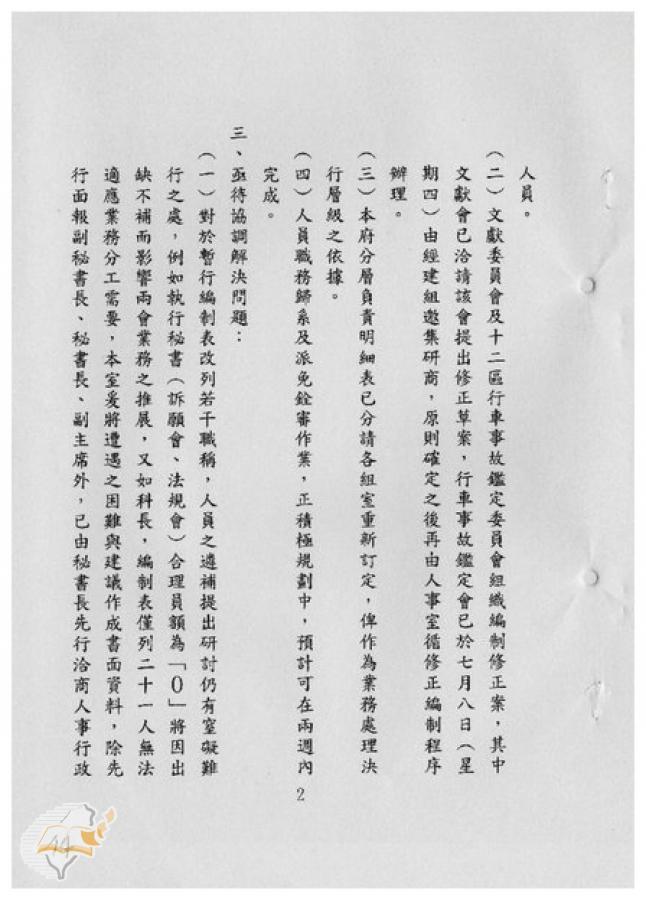 人員。
(二)文獻委員會及十二區行車事故鑑定委員會組織編制修正案,其中
文獻會已洽請該會提出修正草案,行車事故鑑定會已於七月八日(星
期四)由經建組邀集研商,原則確定之後再由人事室循修正編制程序
辦理。
(三)本府分層負責明細表已分請各組室重新訂定,俾作為業務處理決
行層級之依據。
(四)人員職務歸系及派免銓審作業,正積極規劃中,預計可在兩週內
完成。
三、亟待協調解決問題:
(一)對於暫行編制表改列若干職稱,人員之遴補提出研討仍有窒礙難
行之處,例如執行秘書(訴願會、法規會)合理員額為「0」將因出
缺不補而影響兩會業務之推展,又如科長,編制表僅列二十一人無法
適應業務分工需要,本室爰將遭遇之困難與建議作成書面資料,除先
行面報副秘書長、秘書長、副主席外,已由秘書長先行洽商人事行政
2